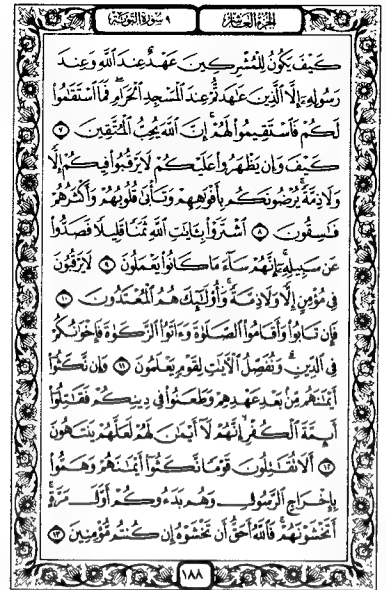 الجزء العاشر
٩ سورة التوبة
كَيْفَ يَكُونُ لِلْمُشْرِكِينَ عَهْدٌ عِندَ اللَّهِ وَعِندَ
رَسُولِهِ إِلَّا الَّذِينَ عَاهَدتُّمْ عِندَ الْمَسْجِدِ الْحَرَامِ ۖ فَمَا اسْتَقَامُوا
لَكُمْ فَاسْتَقِيمُوا لَهُمْ ۚ إِنَّ اللَّهَ يُحِبُّ الْمُتَّقِينَ ٧
كَيْفَ وَإِن يَظْهَرُوا عَلَيْكُمْ لَا يَرْقُبُوا فِيكُمْ إِلًّا
وَلَا ذِمَّةً ۚ يُرْضُونَكُم بِأَفْوَاهِهِمْ وَتَأْبَىٰ قُلُوبُهُمْ وَأَكْثَرُهُمْ
فَاسِقُونَ ٨ اشْتَرَوْا بِآيَاتِ اللَّهِ ثَمَنًا قَلِيلًا فَصَدُّوا
عَن سَبِيلِهِ ۚ إِنَّهُمْ سَاءَ مَا كَانُوا يَعْمَلُونَ ٩ لَا يَرْقُبُونَ
فِي مُؤْمِنٍ إِلًّا وَلَا ذِمَّةً ۚ وَأُولَٰئِكَ هُمُ الْمُعْتَدُونَ ١٠
فَإِن تَابُوا وَأَقَامُوا الصَّلَوٰةَ وَآتَوُا الزَّكَوٰةَ فَإِخْوَانُكُمْ
فِي الدِّينِ ۗ وَنُفَصِّلُ الْآيَاتِ لِقَوْمٍ يَعْلَمُونَ ١١ وَإِن نَّكَثُوا
أَيْمَانَهُم مِّن بَعْدِ عَهْدِهِمْ وَطَعَنُوا فِي دِينِكُمْ فَقَاتِلُوا
أَئِمَّةَ الْكُفْرِ ۙ إِنَّهُمْ لَا أَيْمَانَ لَهُمْ لَعَلَّهُمْ يَنتَهُونَ
١٢ أَلَا تُقَاتِلُونَ قَوْمًا نَّكَثُوا أَيْمَانَهُمْ وَهَمُّوا
بِإِخْرَاجِ الرَّسُولِ وَهُم بَدَءُوكُمْ أَوَّلَ مَرَّةٍ ۚ
أَتَخْشَوْنَهُمْ ۚ فَاللَّهُ أَحَقُّ أَن تَخْشَوْهُ إِن كُنتُم مُّؤْمِنِينَ ١٣
١٨٨